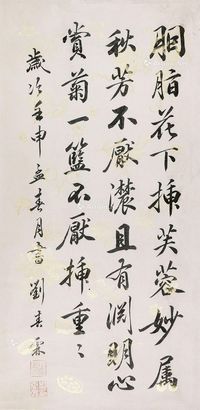 胭脂花下插芙蓉妙属
秋芳不厭濃且有淵明心
賞菊一籃不厭插重〻
歲次壬申孟春月劉春霖